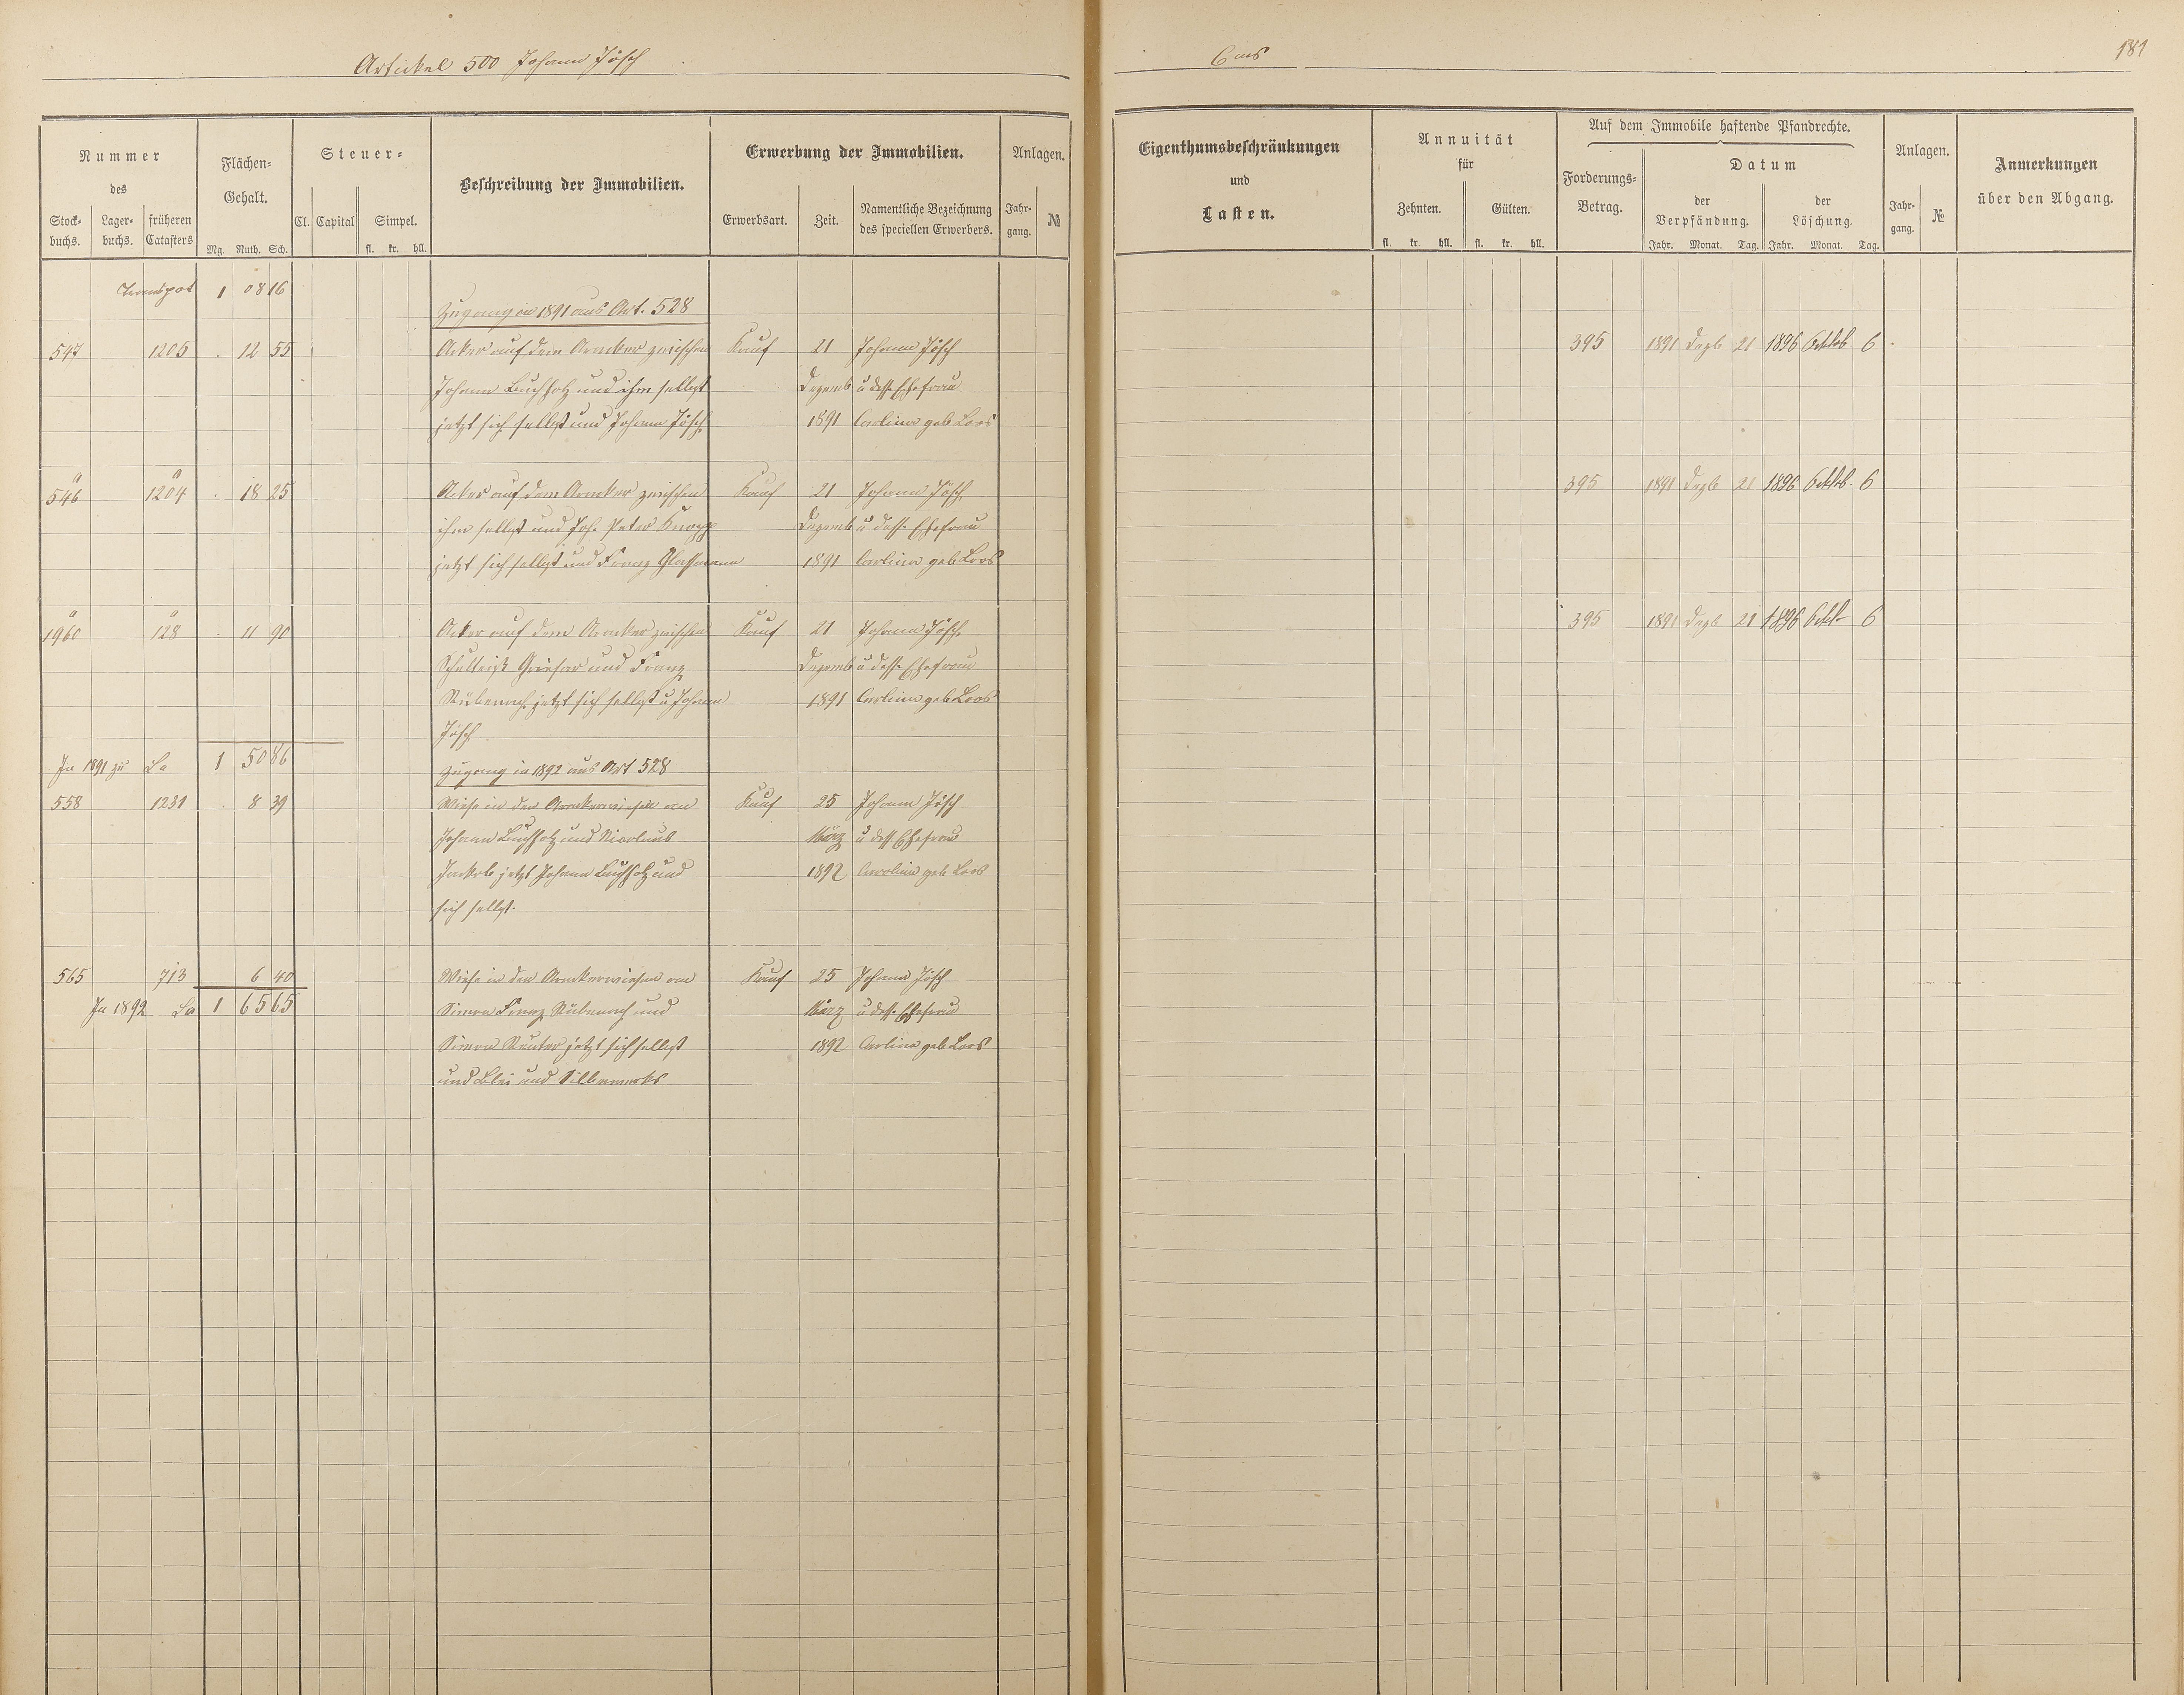 Artickel 500 Johann Jösch
Ems
181
Nummer
des
Stock-
buchs.
Lager-
buchs.
früheren
Catasters
Flächen-
Gehalt.
Mg. Ruth. Sch.
Steuer-
Cl. Capital Simpel.
fl. kr. hll.
Beschreibung der Immobilien.
Erwerbung der Immobilien.
Erwerbsart. Zeit. Namentliche Bezeichnung
des speciellen Erwerbers.
Anlagen.
Jahr-
gang. №
Eigenthumsbeschränkungen
und
Lasten.
Annuität
für
Zehnten. Gülten.
fl. kr. hll. fl. kr. hll.
Auf dem Immobile haftende Pfandrechte.
Forderungs-
Betrag.
Datum
der
Verpfändung.
der
Löschung.
Jahr. Monat. Tag. Jahr. Monat. Tag.
Anlagen.
Jahr-
gang. №
Anmerkungen
über den Abgang.
Transport 1 08 16
Zugang in 1891 aus Art. 528
547 1205 . 12 55 Acker auf dem Aemker zwischen Kauf 21 Johann Jösch 395 1891 Dezb 21 1896 Octob. 6
Johann Buchholz und ihm selbst Dezemb u. dess. Ehefrau
jetzt sich selbst und Johann Jösch 1891 Carlina geb Loos
546 a 1204 a . 18 25 Acker auf dem Aemker zwischen Kauf 21 Johann Jösch 395 1891 Dezb 21 1896 Octob. 6
ihm selbst und Joh. Peter Knopp Dezemb u dess. Ehefrau
jetzt sich selbst und Franz 1891 Carlina geb Loos
1960 a 128 a . 11 90 Acker auf dem Aemker zwischen Kauf 21 Johann Jösch 395 1891 Dezb 21 1896 Octb 6
und Franz Dezemb u dess. Ehefrau
Rübenach jetzt sich selbst u Johann 1891 Carlina geb Loos
Jösch
In 1891 zu La 1 50 86
Zugang in 1892 aus Art 528
558 1231 . 8 39 Wiese in den Aemkerwiesen am Kauf 25 Johann Jösch
Johann Buchholz und Nicolaus März u dess Ehefrau
Jackob jetzt Johann Buchholz und 1892 Carolina geb Loos
sich selbst.
565 713 6 40 Wiese in den Aemkerwiesen am Kauf 25 Johann Jösch
In 1892 La 1 65 65 Simon Franz Rübenach und März u dess. Ehefrau
Simon Reuter jetzt sich selbst 1892 Carlina geb Loos
und Blei und Silberwerks